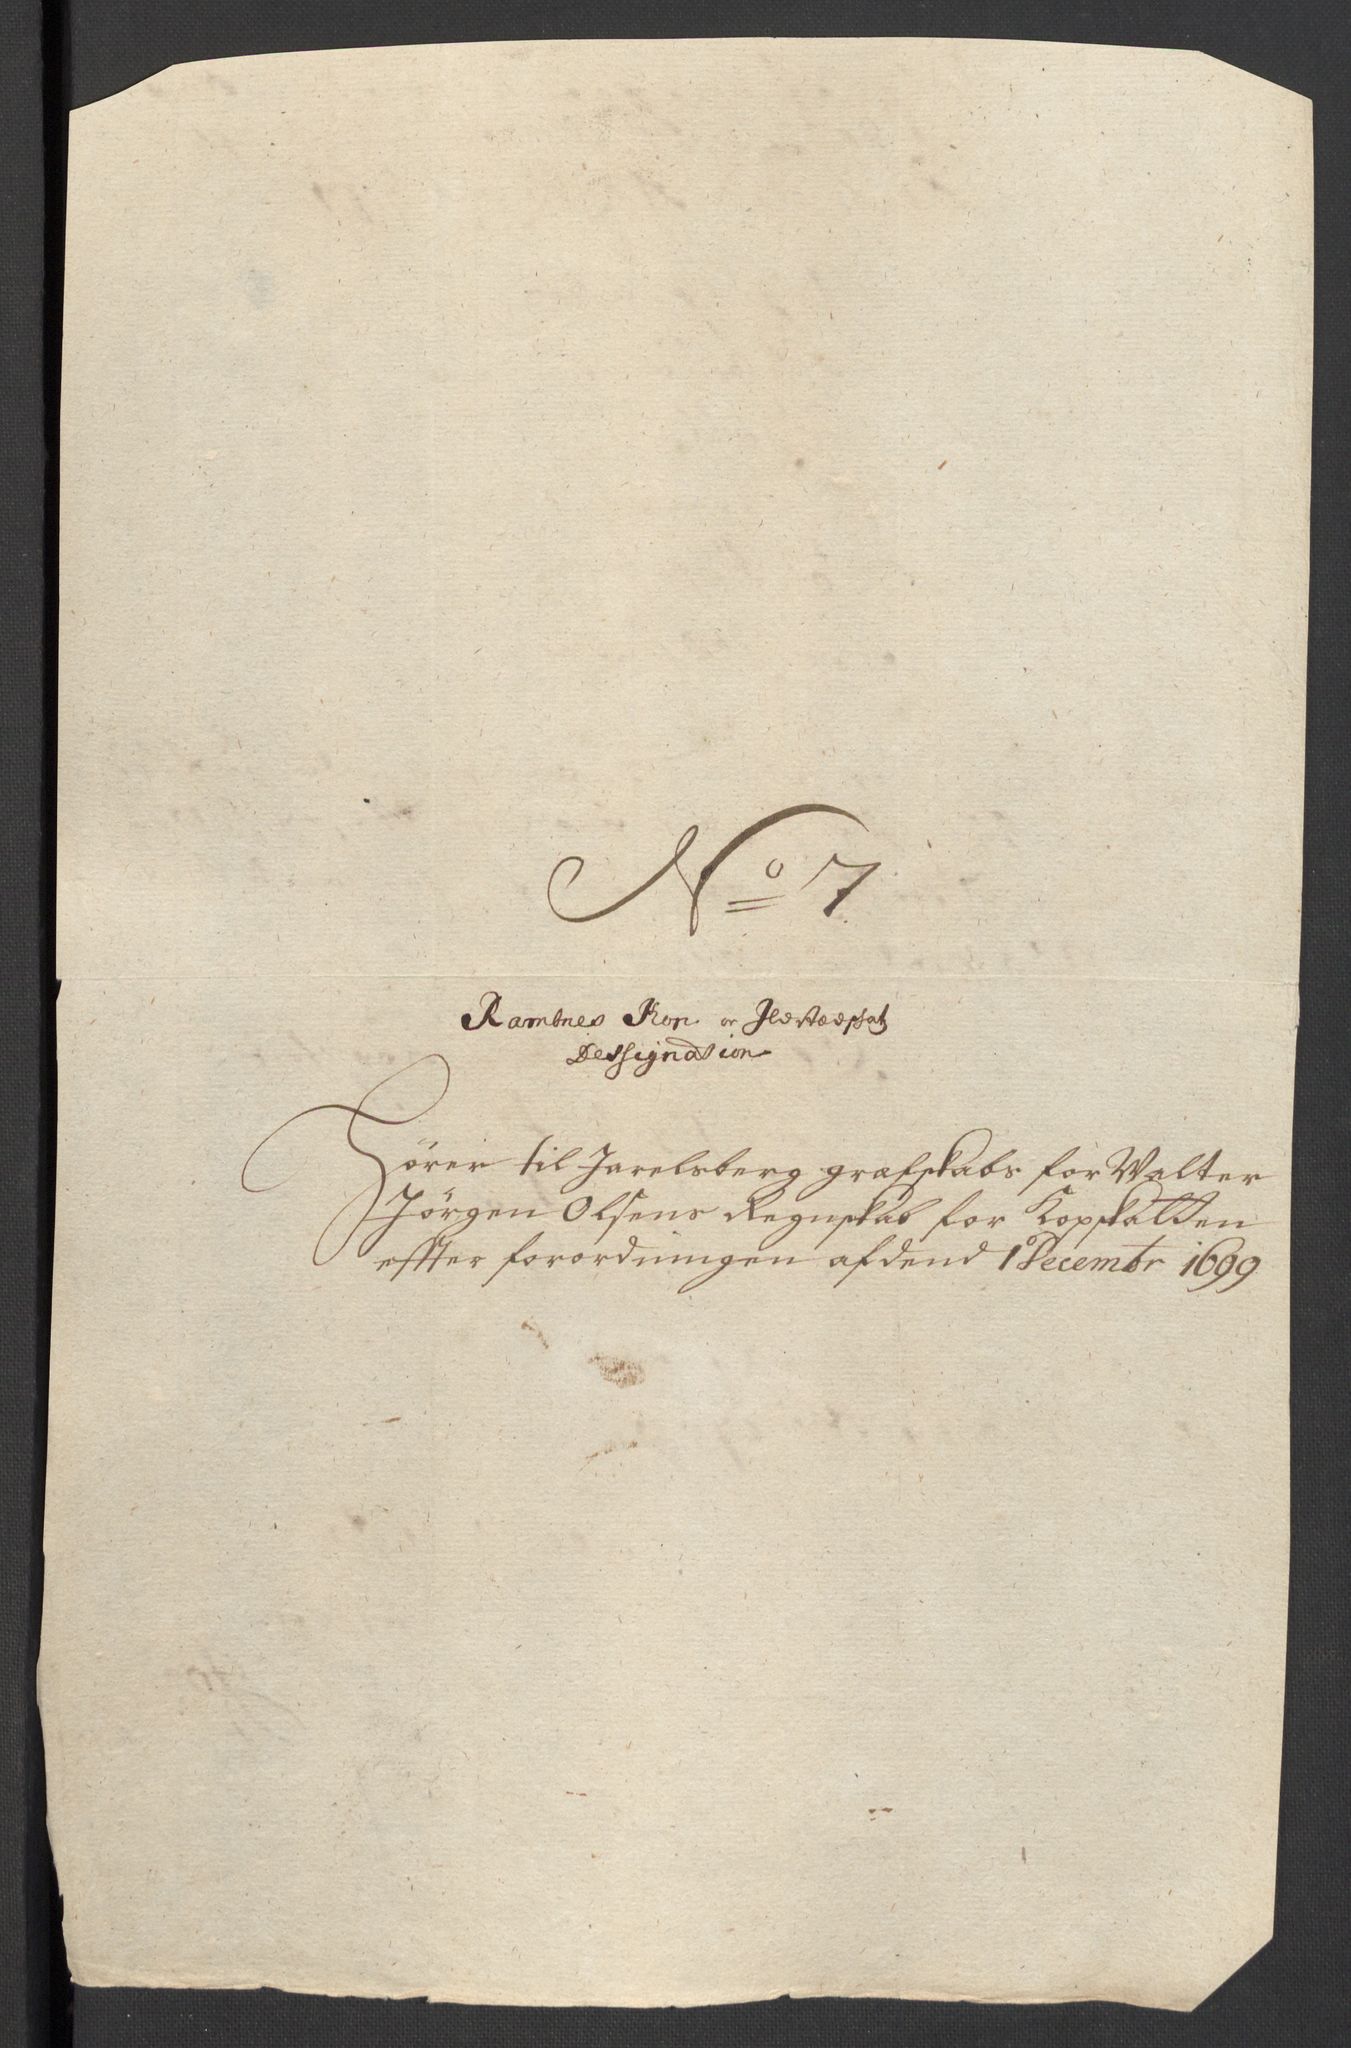 No 7
Rambnes Kop or Ildstædskat
Dessignation
Hörer til Jarelsberg grafskabs forWalter
Jörgen Olsens Regnskab for Kopskatten
effter forordningen af dend 1 Decembr 1699